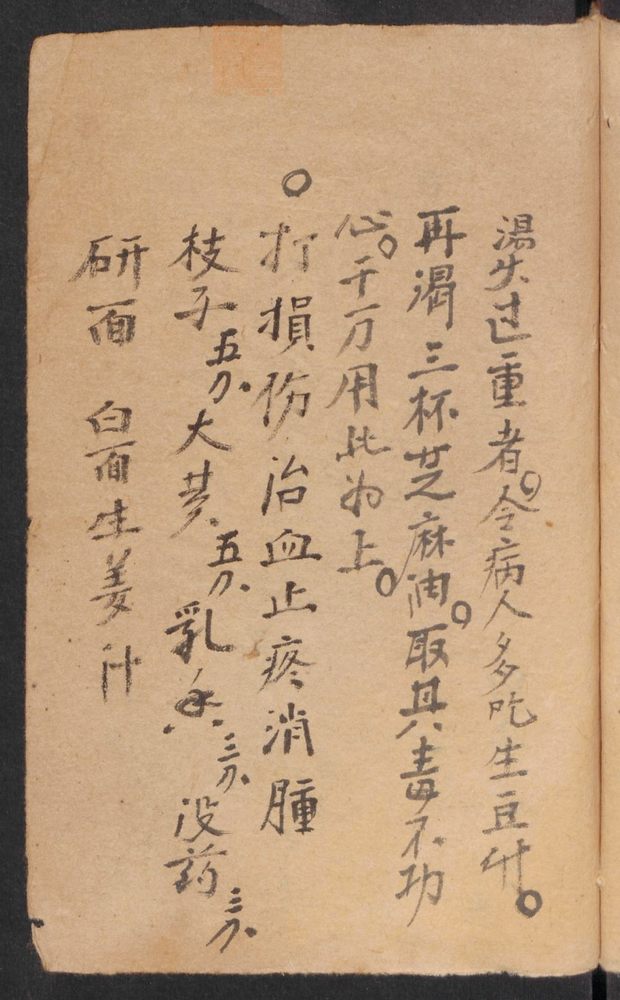 湯失过重者。令病人多吃生豆付。
再渴三杯芝麻油。取其毒不功
心。千万用此为上。
○打損伤治血止疼消腫
枝子五分大黄五分乳香三分没药三分
研面 白面生姜汁